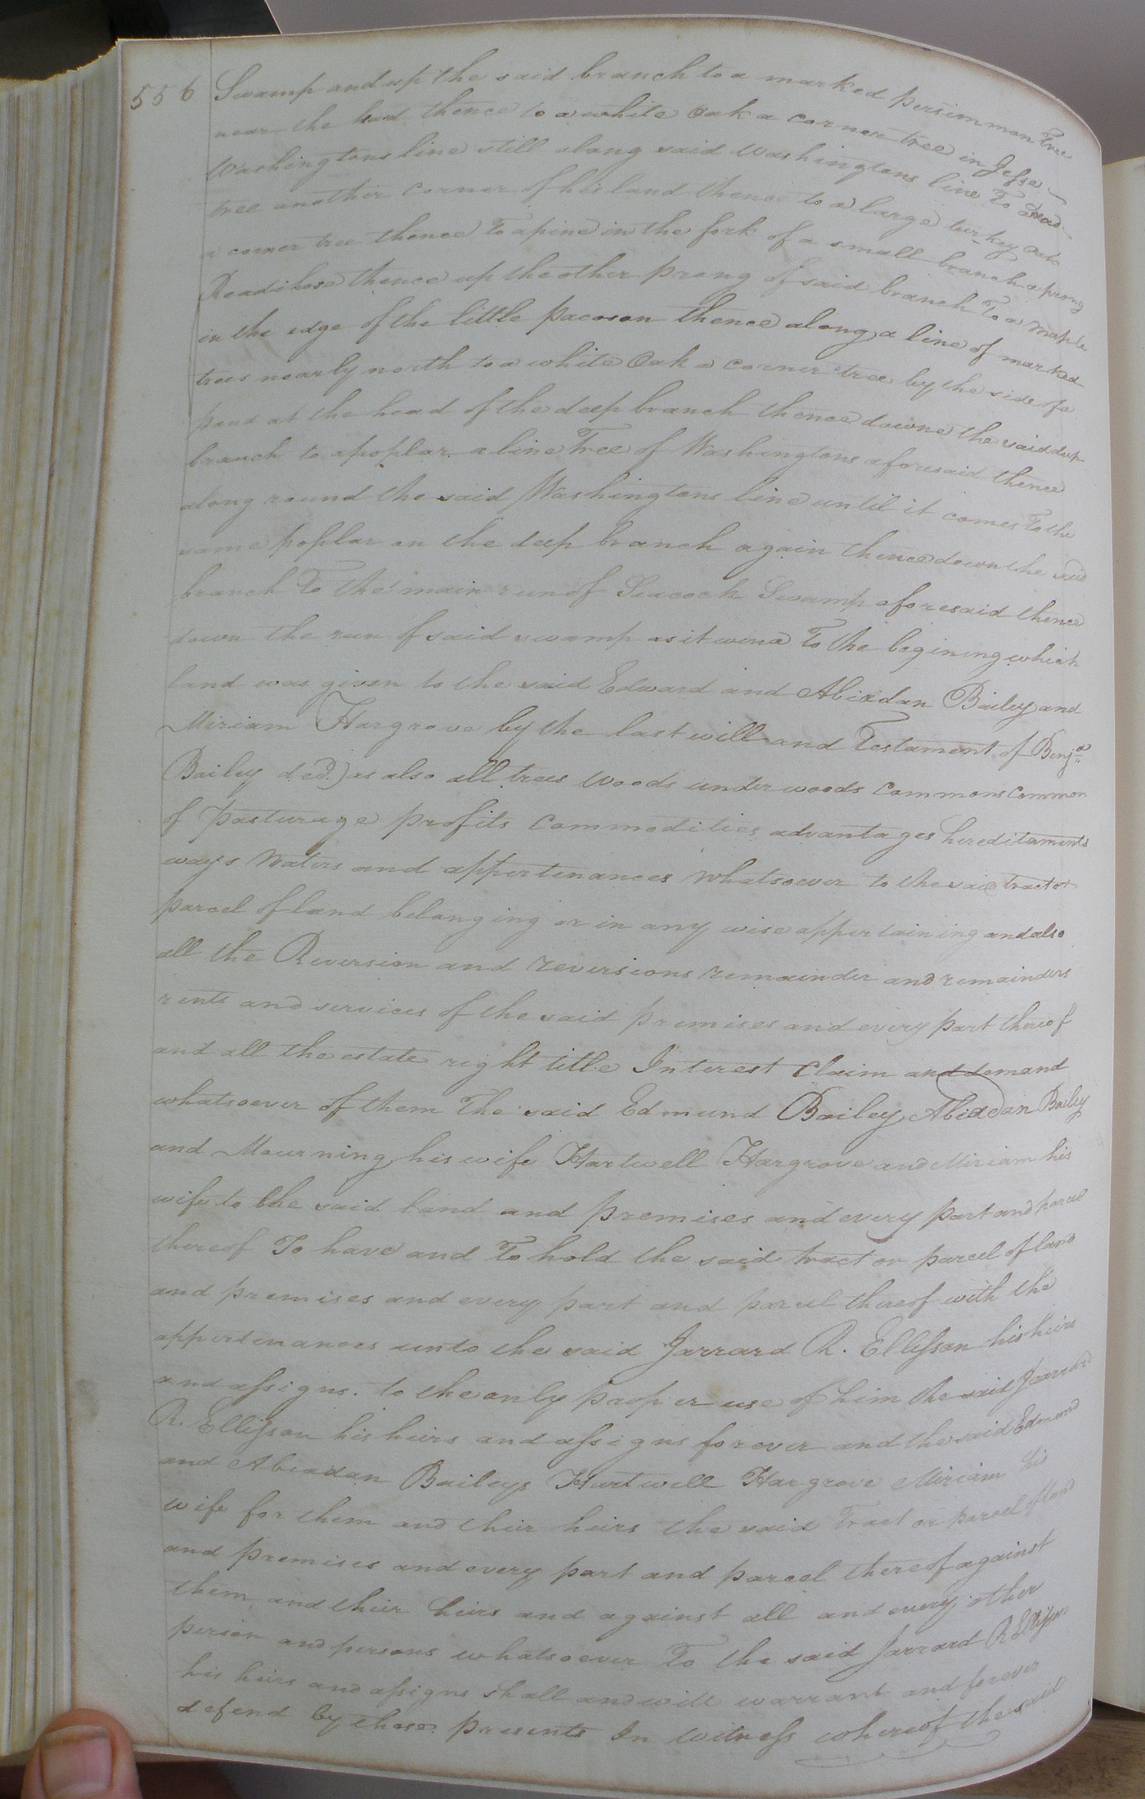 556 Swamp and up the said branch to a marked persimmon Tree
near the head thence to a white Oak a corner tree in Jesse
Washingtons line still along said Washingtons line To a
tree another corner of his land thence to a large turkey Oak
a corner tree thence To a pine in the fork of a small branch a prong
thence up the other prong of said branch To a maple
in the edge of the little pacoson thence along a line of marked
trees nearly north to a white Oak a corner tree by the side of a
pond at the head of the deep branch thence downe the said deep
branch to a poplar a line Tree of Washingtons aforesaid thence
along round the said Washingtons line until it comes To the
same poplar on the deep branch again thence down the said
branch To the main run of Seacock Swamp aforesaid thence
down the run of said swamp as it wind To the begining which
land was given to the said Edward and Abixdan Bailey and
Miriam Hargrove by the last will and Testament of Benja
Bailey decd.) as also all trees woods under woods commons common
of pasturage profits commodities advantages hereditaments
ways waters and appertenances whatsoever to the said tract or
parcel of land belonging or in any wise appertaining and also
all the Reversion and reversions remainder and remainders
rents and services of the said premises and every part thereof
and all the estate right title Interest Claim and demand
whatsoever of them The said Edmund Bailey Abixdan Bailey
and Mourning his wife Hartwell Hargrove and Miriam his
wife to the said land and premises and every part and parcel
thereof To have and To hold the said tract or parcel of land
and premises and every part and parcel thereof with the
appurtenances unto the said Jarrard R. Ellisson his heirs
and assigns. to the only proper use of him the said Jarrard
R. Ellisson his heirs and assigns forever and the said Edmond
and Abixdan Baileys Hartwell Hargrove Miriam his
wife for them and their heirs the said Tract or parcel of land
and premises and every part and parcel thereof against
them and their heirs and against all and every other
person and persons whatsoever To the said Jarrard R Ellisson
his heirs and assigns shall and will warrant and forever
defend by these presents In witness whereof the said